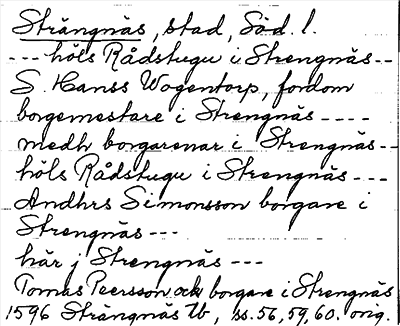 Strängnäs, stad, Söd. l.
--- höls Rådstugu i Strengnäs --
S. Hanss Wogentorp, fordom
borgemestare i Strengnäs ----
medh borgarenar i Strengnäs --
höls Rådstugu i Strengnäs ---
Andhrs Simonsson borgare i
Strengnäs ---
här j Strengnäs ---
Tomas Peersson och borgare i Strengnäs
1596 Strängnäs Tb, ss. 56, 59, 60. orig.